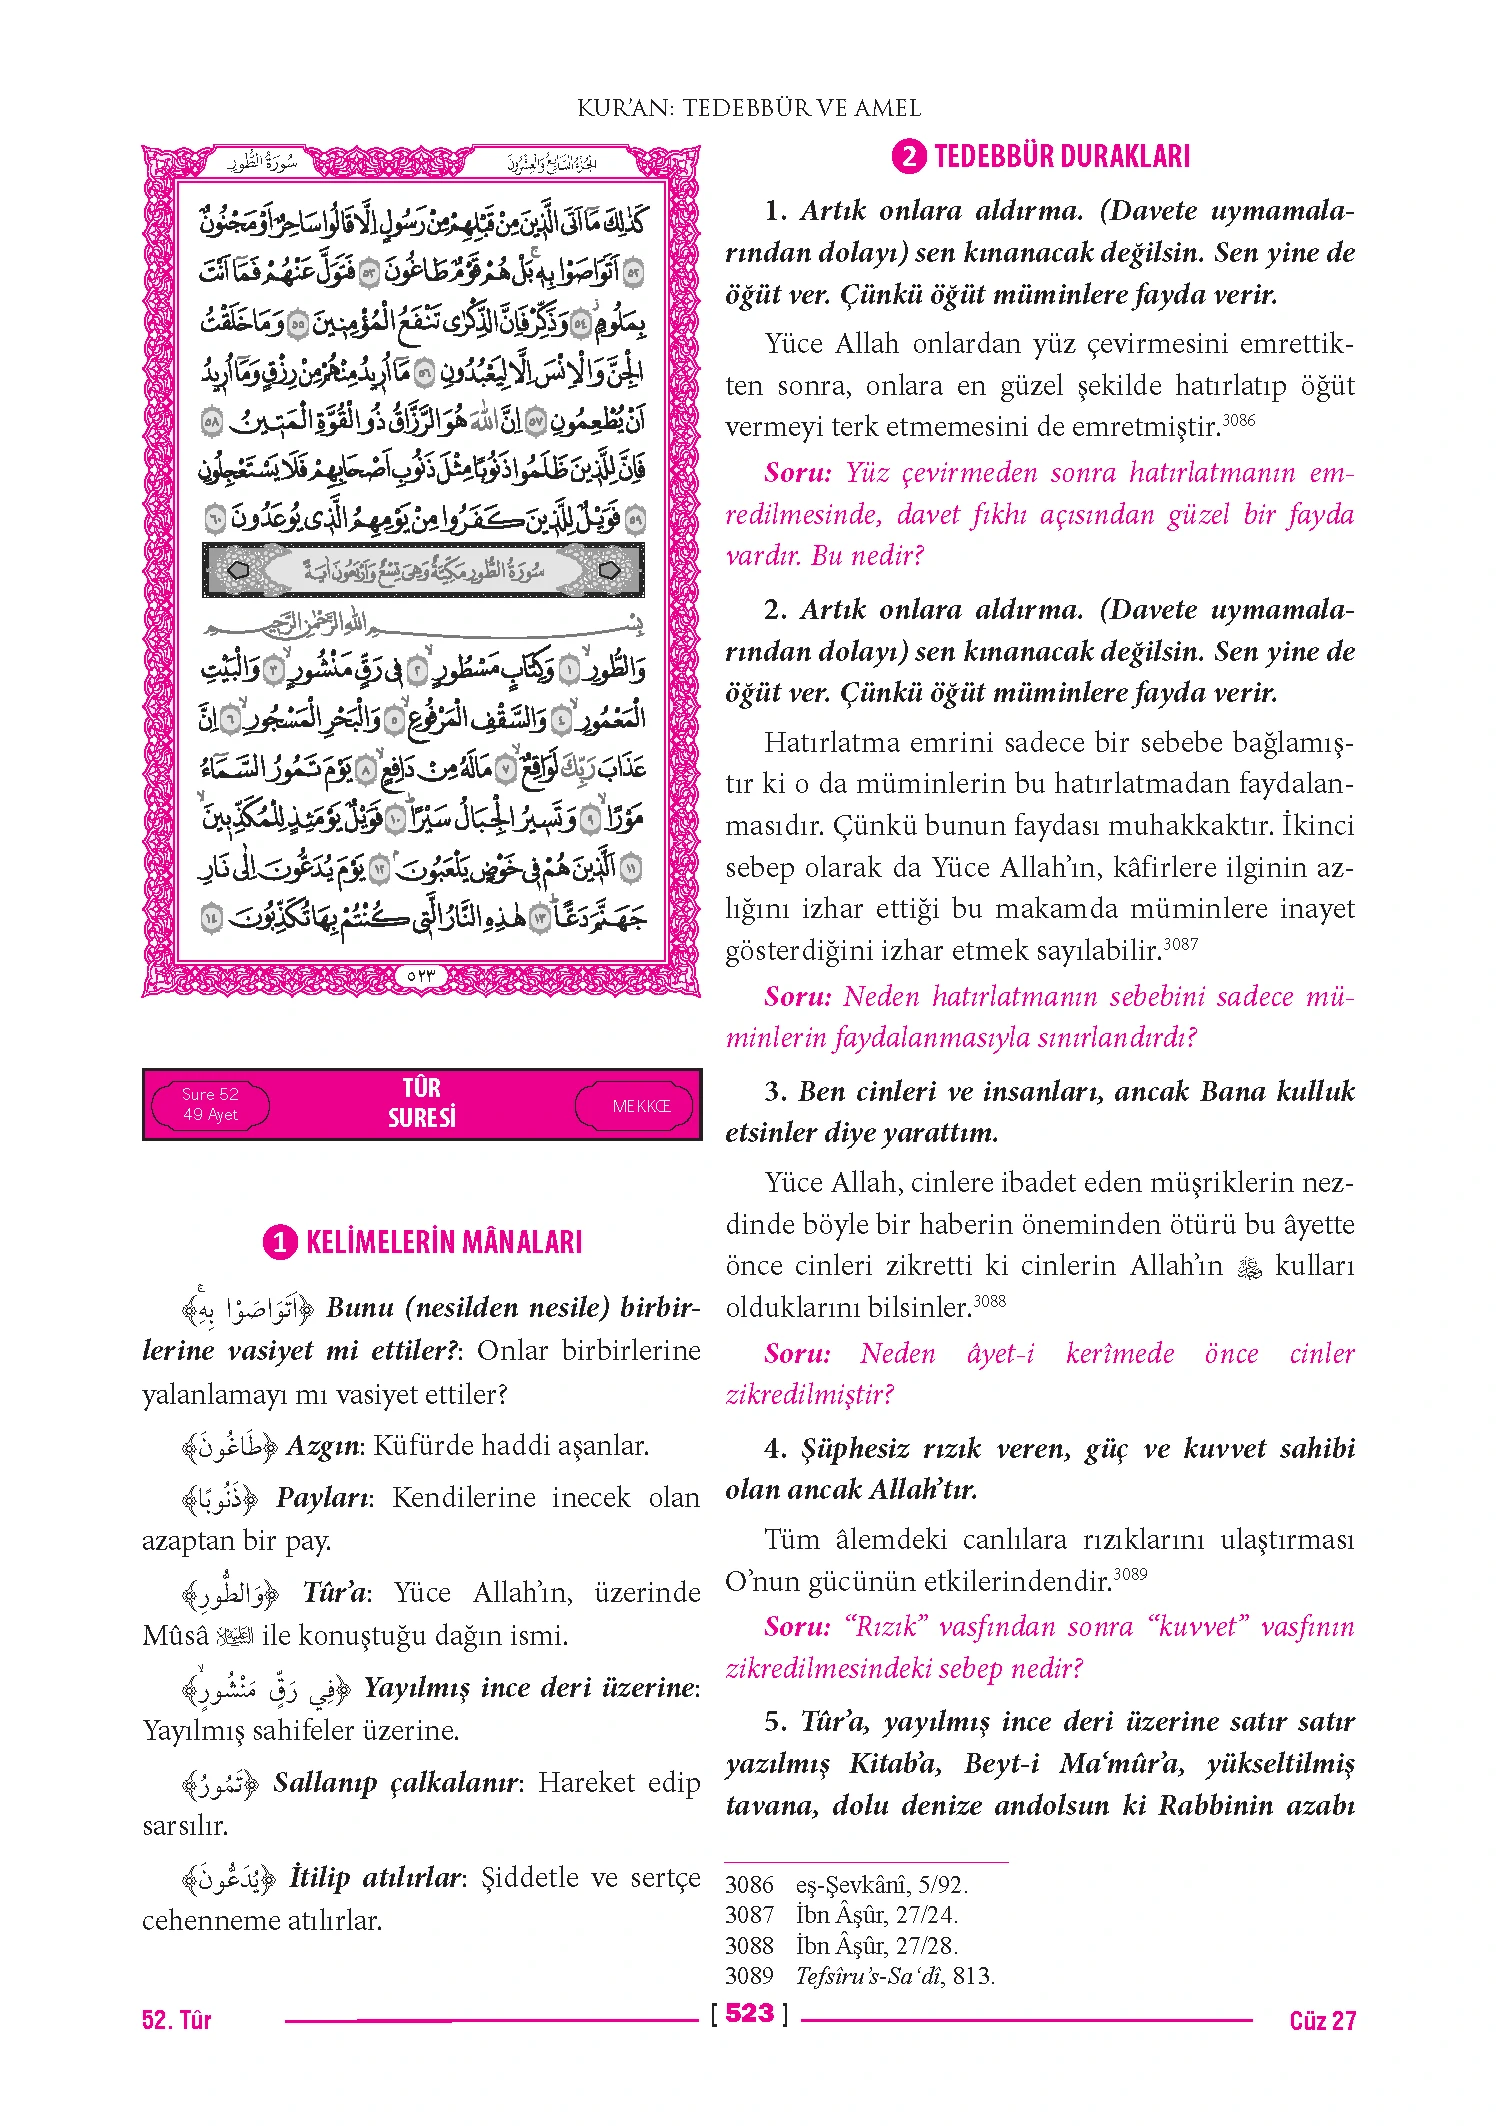 KUR'AN: TEDEBBÜR VE AMEL
سُورَةُ الطُّورِ
اَلْجُزْءُ السَّابِعُ وَالْعِشْرُونَ
كَذٰلِكَ مَٓا اَتَى الَّذٖينَ مِنْ قَبْلِهِمْ مِنْ رَسُولٍ اِلَّا قَالُوا سَاحِرٌ اَوْ مَجْنُونٌ
﴿٥٢﴾ اَتَوَاصَوْا بِهٖۚ بَلْ هُمْ قَوْمٌ طَاغُونَ ﴿٥٣﴾ فَتَوَلَّ عَنْهُمْ فَمَٓا اَنْتَ
بِمَلُومٍۘ ﴿٥٤﴾ وَذَكِّرْ فَاِنَّ الذِّكْرٰى تَنْفَعُ الْمُؤْمِنٖينَ ﴿٥٥﴾ وَمَا خَلَقْتُ
الْجِنَّ وَالْاِنْسَ اِلَّا لِيَعْبُدُونِ ﴿٥٦﴾ مَٓا اُرٖيدُ مِنْهُمْ مِنْ رِزْقٍ وَمَٓا اُرٖيدُ
اَنْ يُطْعِمُونِ ﴿٥٧﴾ اِنَّ اللّٰهَ هُوَ الرَّزَّاقُ ذُو الْقُوَّةِ الْمَتٖينُ ﴿٥٨﴾
فَاِنَّ لِلَّذٖينَ ظَلَمُوا ذَنُوبًا مِثْلَ ذَنُوبِ اَصْحَابِهِمْ فَلَا يَسْتَعْجِلُونِ
﴿٥٩﴾ فَوَيْلٌ لِلَّذٖينَ كَفَرُوا مِنْ يَوْمِهِمُ الَّذٖى يُوعَدُونَ ﴿٦٠﴾
سُورَةُ الطُّورِ مَكِّيَّةٌ وَهِىَ تِسْعٌ وَاَرْبَعُونَ اٰيَةً
بِسْمِ اللّٰهِ الرَّحْمٰنِ الرَّحٖيمِ
وَالطُّورِۙ ﴿١﴾ وَكِتَابٍ مَسْطُورٍۙ ﴿٢﴾ فٖى رَقٍّ مَنْشُورٍۙ ﴿٣﴾ وَالْبَيْتِ
الْمَعْمُورِۙ ﴿٤﴾ وَالسَّقْفِ الْمَرْفُوعِۙ ﴿٥﴾ وَالْبَحْرِ الْمَسْجُورِۙ ﴿٦﴾ اِنَّ
عَذَابَ رَبِّكَ لَوَاقِعٌۙ ﴿٧﴾ مَالَهُ مِنْ دَافِعٍۙ ﴿٨﴾ يَوْمَ تَمُورُ السَّمَٓاءُ
مَوْرًاۙ ﴿٩﴾ وَتَسٖيرُ الْجِبَالُ سَيْرًاؕ ﴿١٠﴾ فَوَيْلٌ يَوْمَئِذٍ لِلْمُكَذِّبٖينَۙ
﴿١١﴾ اَلَّذٖينَ هُمْ فٖى خَوْضٍ يَلْعَبُونَۘ ﴿١٢﴾ يَوْمَ يُدَعُّونَ اِلٰى نَارِ
جَهَنَّمَ دَعًّاؕ ﴿١٣﴾ هٰذِهِ النَّارُ الَّتٖى كُنْتُمْ بِهَا تُكَذِّبُونَ ﴿١٤﴾
٥٢٣
Sure 52
49 Ayet
TÛR
SURESİ
MEKKÎ
1 KELİMELERİN MÂNALARI
﴿اَتَوَاصَوْا بِهِۚ﴾ Bunu (nesilden nesile) birbir-
lerine vasiyet mi ettiler?: Onlar birbirlerine
yalanlamayı mı vasiyet ettiler?
﴿طَاغُونَ﴾ Azgın: Küfürde haddi aşanlar.
﴿ذَنُوبًا﴾ Payları: Kendilerine inecek olan
azaptan bir pay.
﴿وَالطُّورِ﴾ Tûr'a: Yüce Allah'ın, üzerinde
Mûsâ عليه السلام ile konuştuğu dağın ismi.
﴿فِي رَقٍّ مَنْشُورٍۙ﴾ Yayılmış ince deri üzerine:
Yayılmış sahifeler üzerine.
﴿تَمُورُ﴾ Sallanıp çalkalanır: Hareket edip
sarsılır.
﴿يُدَعُّونَ﴾ İtilip atılırlar: Şiddetle ve sertçe
cehenneme atılırlar.
2 TEDEBBÜR DURAKLARI
1. Artık onlara aldırma. (Davete uymamala-
rından dolayı) sen kınanacak değilsin. Sen yine de
öğüt ver. Çünkü öğüt müminlere fayda verir.
Yüce Allah onlardan yüz çevirmesini emrettik-
ten sonra, onlara en güzel şekilde hatırlatıp öğüt
vermeyi terk etmemesini de emretmiştir.3086
Soru: Yüz çevirmeden sonra hatırlatmanın em-
redilmesinde, davet fıkhı açısından güzel bir fayda
vardır. Bu nedir?
2. Artık onlara aldırma. (Davete uymamala-
rından dolayı) sen kınanacak değilsin. Sen yine de
öğüt ver. Çünkü öğüt müminlere fayda verir.
Hatırlatma emrini sadece bir sebebe bağlamış-
tır ki o da müminlerin bu hatırlatmadan faydalan-
masıdır. Çünkü bunun faydası muhakkaktır. İkinci
sebep olarak da Yüce Allah'ın, kâfirlere ilginin az-
lığını izhar ettiği bu makamda müminlere inayet
gösterdiğini izhar etmek sayılabilir.3087
Soru: Neden hatırlatmanın sebebini sadece mü-
minlerin faydalanmasıyla sınırlandırdı?
3. Ben cinleri ve insanları, ancak Bana kulluk
etsinler diye yarattım.
Yüce Allah, cinlere ibadet eden müşriklerin nez-
dinde böyle bir haberin öneminden ötürü bu âyette
önce cinleri zikretti ki cinlerin Allah'ın ﷻ kulları
olduklarını bilsinler.3088
Soru: Neden âyet-i kerîmede önce cinler
zikredilmiştir?
4. Şüphesiz rızık veren, güç ve kuvvet sahibi
olan ancak Allah'tır.
Tüm âlemdeki canlılara rızıklarını ulaştırması
O'nun gücünün etkilerindendir.3089
Soru: “Rızık” vasfından sonra “kuvvet” vasfının
zikredilmesindeki sebep nedir?
5. Tûr'a, yayılmış ince deri üzerine satır satır
yazılmış Kitab'a, Beyt-i Ma‘mûr'a, yükseltilmiş
tavana, dolu denize andolsun ki Rabbinin azabı
3086 eş-Şevkânî, 5/92.
3087 İbn Âşûr, 27/24.
3088 İbn Âşûr, 27/28.
3089 Tefsîru's-Sa‘dî, 813.
52. Tûr
[ 523 ]
Cüz 27